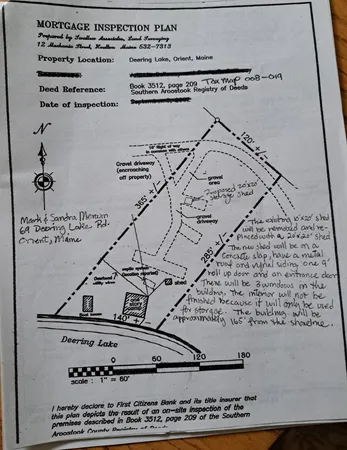 MORTGAGE INSPECTION PLAN
Prepared by Associates, Land Surveying
12 Mechanic Street, Houlton, Maine 532-7313
Property Location: Deering Lake, Orient, Maine
Deed Reference: Book 3512, page 209 Tax map 008-019
Southern Aroostook Registry of Deeds
Date of inspection:
N
15' Right of way
in common with others
120' +/-
Gravel driveway
(encroaching
off property)
gravel
area
365' +/-
Proposed 20'x22'
storage shed
gravel
driveway
285' +/-
Mark & Sandra
69 Deering Lake Rd.
Orient, Maine
The existing 10'x20' shed
will be removed and re-
placed with a 20'x22' shed
The new shed will be on a
concrete slab, have a metal
roof and vinyl siding, one 9'
roll up door and an entrance door.
There will be 3 windows in the
building. The interior will not be
finished because it will only be used
for storage. The building will be
approximately 165' from the shoreline.
septic system
Overhead
utility
shed
140' +/-
Deering Lake
0 60 120 180
scale : 1" = 60'
I hereby declare to First Citizens Bank and its title insurer that
this plan depicts the result of an on-site inspection of the
premises described in Book 3512, page 209 of the Southern
Aroostook County Registry of Deeds